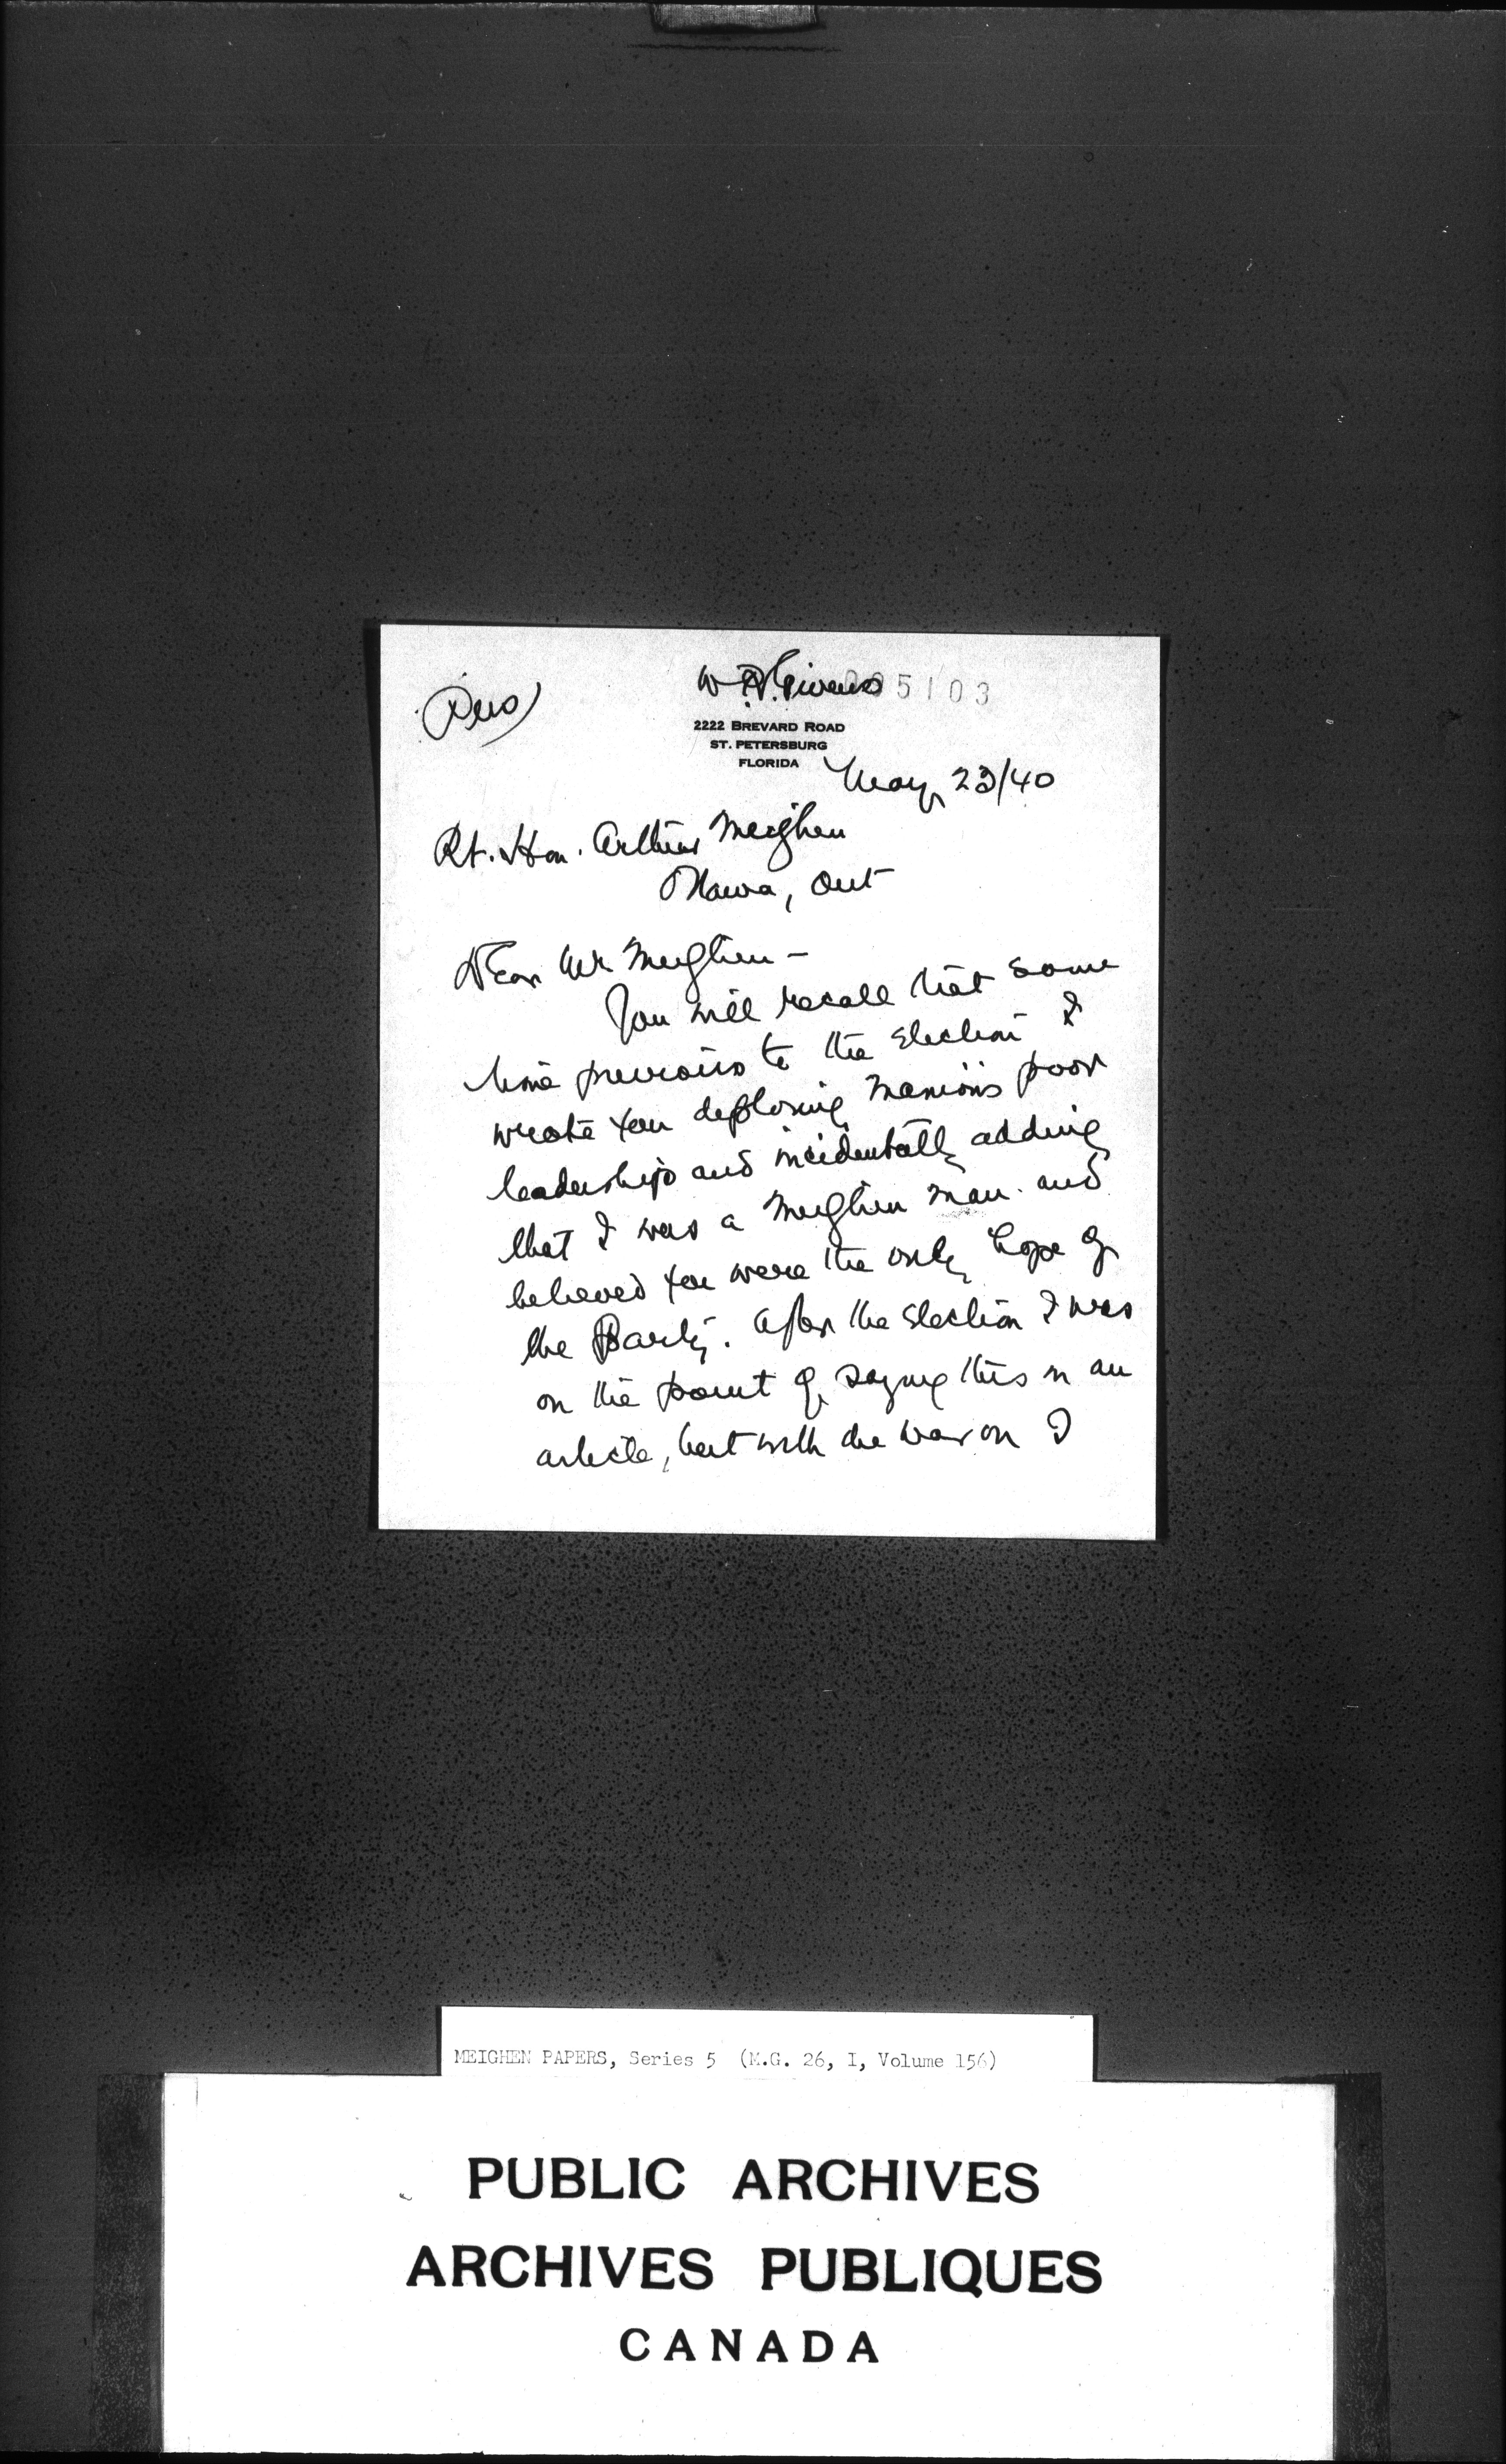 W. A. Givens
5103
2222 BREVARD ROAD
ST. PETERSBURG
FLORIDA
May 23/40
Rt. Hon. Arthur Meighen
Ottawa, Ont
Dear Mr Meighen -
You will recall that some
time previous to the Election I
wrote you deploring Manion's poor
leadership and incidentally adding
that I was a Meighen man and
believed you were the only hope of
the Party. After the Election I was
on the point of saying this in an
article, but with the war on I
MEIGHEN PAPERS, Series 5 (M.G. 26, I, Volume 156)
PUBLIC ARCHIVES
ARCHIVES PUBLIQUES
CANADA